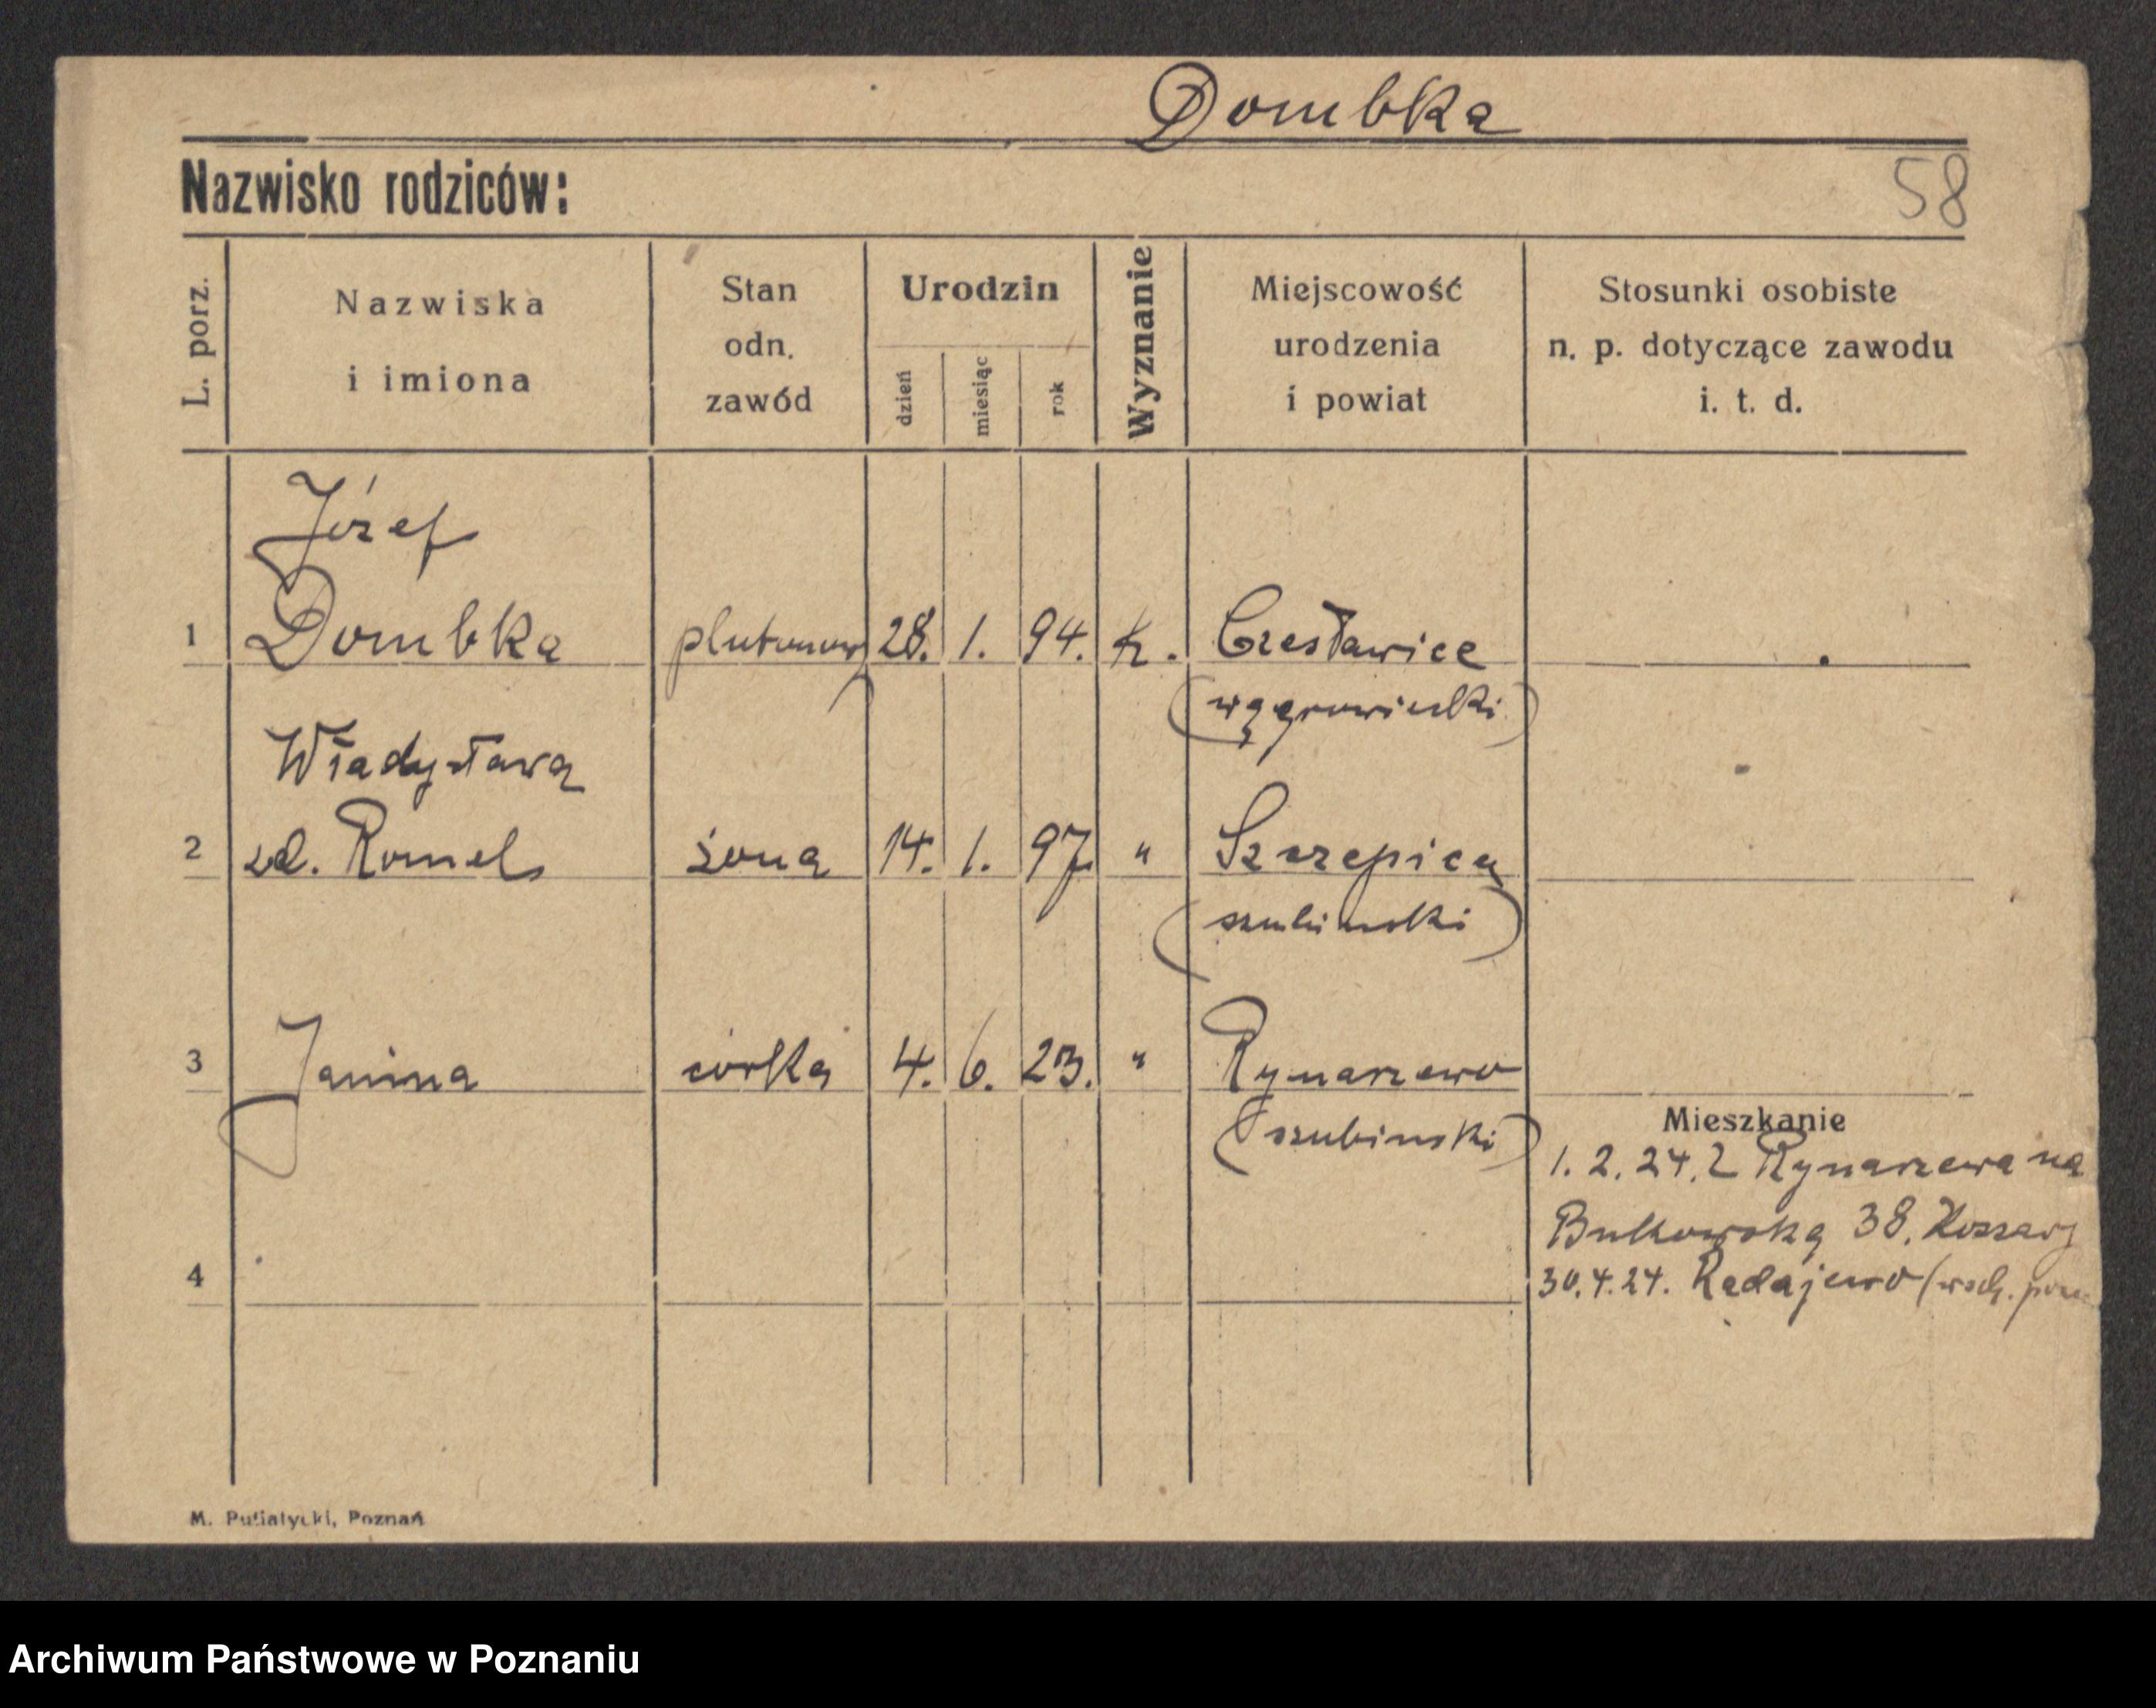 Dombka
Nazwisko rodziców:
58
L. porz.
Nazwiska
i imiona
Stan
odn.
zawód
Urodzin
dzień
miesiąc
rok
Wyznanie
Miejscowość
urodzenia
i powiat
Stosunki osobiste
n. p. dotyczące zawodu
i. t. d.
Józef
1 Dombka plutonowy 28. 1. 94. k. Czesławice
(wągrowiecki)
Władysława
2 zd. żona 14. 1. 97 " Szczepice
(szubinski)
3 Janina córka 4. 6. 23. " Rynarzewo
(szubinski)
Mieszkanie
1. 2. 24. Z Rynarzewa na
Bukowską 38. Koszary
4
30. 4. 24. Radajewo (wsch.
M. Putiatycki, Poznań
Archiwum Państwowe w Poznaniu